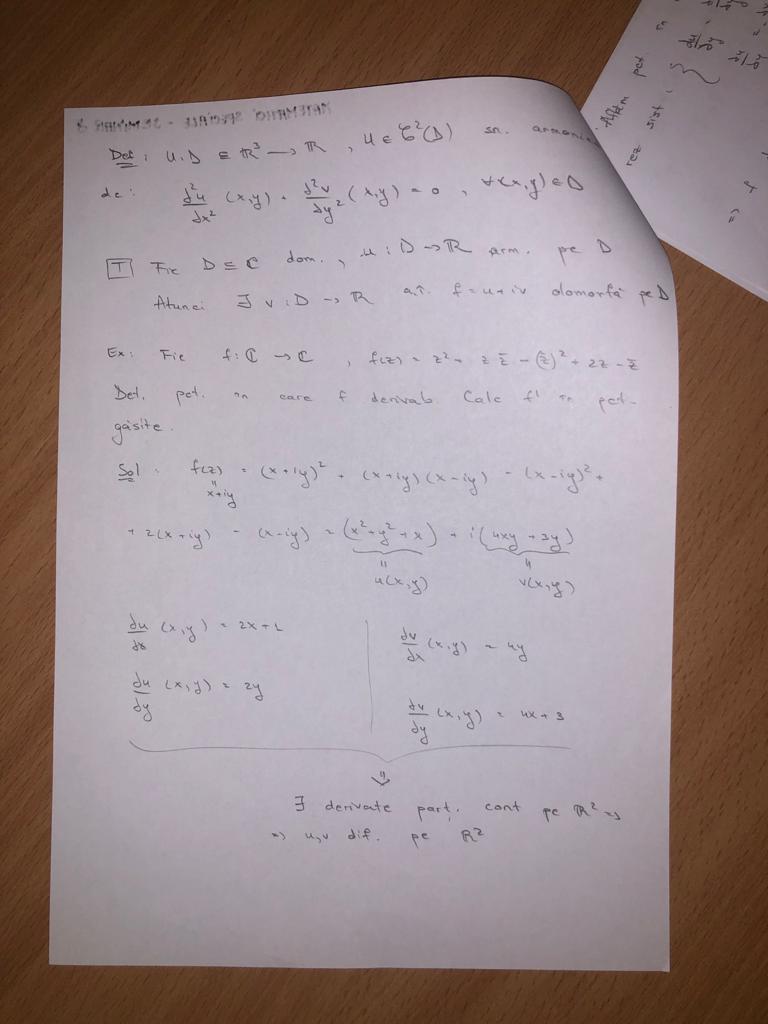 MATEMATICI SPECIALE - SEMINAR 3
Def: u: D ⊆ ℝ³ → ℝ, u ∈ 𝒞²(D) sn. armonică
dc: ∂²u/∂x² (x,y) + ∂²v/∂y² (x,y) = 0, ∀(x,y) ∈ D
[T] Fie D ⊆ ℂ dom., u: D → ℝ arm. pe D
Atunci ∃ v: D → ℝ a.î. f = u + iv olomorfă pe D
Ex: Fie f: ℂ → ℂ, f(z) = z² + z z̄ - (z̄)² + 2z - z̄
Det. pct. în care f derivab. Calc f' în pct-
găsite.
Sol: f(z) = (x+iy)² + (x+iy)(x-iy) - (x-iy)² +
"
x+iy
+ 2(x+iy) - (x-iy) = (x²+y²+x) + i(4xy+3y)
" "
u(x,y) v(x,y)
∂u/∂x (x,y) = 2x+1
∂v/∂x (x,y) = 4y
∂u/∂y (x,y) = 2y
∂v/∂y (x,y) = 4x+3
⇓
∃ derivate parț. cont pe ℝ² =>
=> u,v dif. pe ℝ²
pct în
rez sist
=>